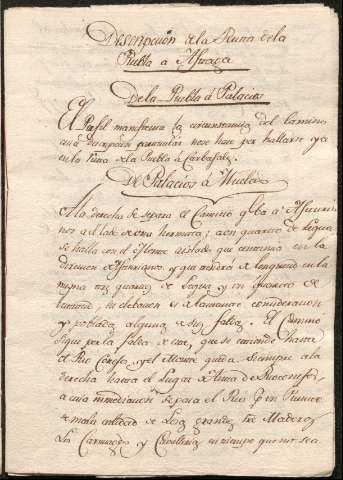 Descripción de la Ruta de la
Puebla a
De la Puebla á Palacios
El Perfil manifiesta las circunstancias del Camino,
cuia descripcion particular no se hace por hallarse ya
en la Ruta de la Puebla á Carbajales
De Palacios á
A la derecha se separa el Camino q.e ba á
al lado de una hermita; a un quarto de legua
se halla con el Monte aislado que continua en la
direccion de y que tendrá de longitud en la
misma tres quartos de legua y un quarto de
latitud, su elevacion es de bastante consideracion
y poblada alguna de sus faldas. El Camino
sigue por la falda de este, que se extiende hasta
el Rio y el Monte queda siempre a la
derecha hasta el Lugar de de
a cuia inmediacion se pasa el Rio p.r un Puente
de mala calidad de Losas grandes y Maderos
Los Carruages y Caballerias en tiempo que no sea